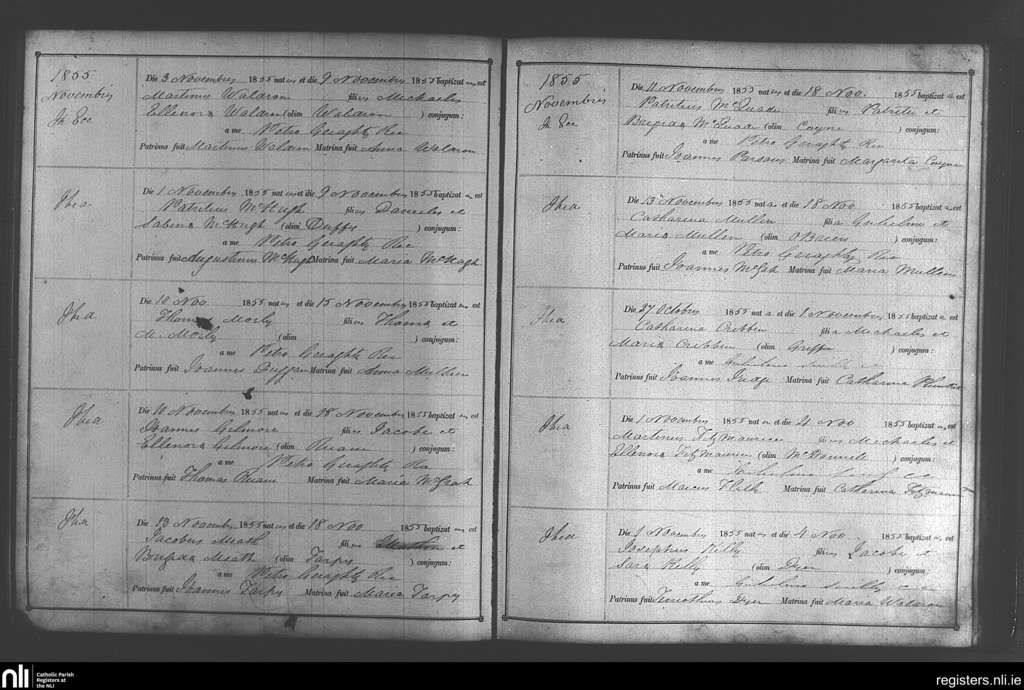 1855
Novembris
Die 3 Novembris 1855 natus et die 9 Novembris 1855 baptizatus est
Martinus Waldron filius Michaelis
Ellenora Waldron (olim Waldron) conjugum:
a me Petro Geraghty Rcc
Patrinus fuit Martinus Waldron Matrina fuit Anna Waldron
Ibia
Die 1 Novembris 1855 natus et die 9 Novembris 1855 baptizatus est
Patritius McHugh filius Danielis et
Sabina McHugh (olim Duffy) conjugum:
a me Petro Geraghty Rcc
Patrinus fuit Augustinus McHugh Matrina fuit Maria McHugh
Ibia
Die 10 Nov. 1855 natus et die 15 Novembris 1855 baptizatus est
Thomas Morly filius Thoma et
M. Morly (olim ) conjugum:
a me Petro Geraghty Rcc
Patrinus fuit Joannes Matrina fuit Anna Mullen
Ibia
Die 10 Novembris 1855 natus et die 18 Novembris 1855 baptizatus est
Joannes Gilmore filius Jacobi et
Ellenora Gilmore (olim Ruane) conjugum:
a me Petro Geraghty Rcc
Patrinus fuit Thomas Ruane Matrina fuit Maria McGrath
Ibia
Die 13 Novembris 1855 natus et die 18 Nov. 1855 baptizatus est
Jacobus Meath filius et
Brigida Meath (olim Tarpy) conjugum:
a me Petro Geraghty Rcc
Patrinus fuit Joannes Tarpy Matrina fuit Maria Tarpy
1855
Novembris
Die 11 Novembris 1855 natus et die 18 Nov. 1855 baptizatus est
Patritius McQuade filius Patritii et
Brigida McQuade (olim Coyne) conjugum:
a me Petro Geraghty Rcc
Patrinus fuit Joannes Parsons Matrina fuit Margarita Coyne
Ibia
Die 13 Novembris 1855 nata et die 18 Nov. 1855 baptizata est
Catharina Mullen filia Gulielmi et
Maria Mullen (olim OBrien) conjugum:
a me Petro Geraghty Rcc
Patrinus fuit Joannes Matrina fuit Maria Mullen
Ibia
Die 27 Octobris 1855 nata et die 1 Novembris 1855 baptizata est
Catharina Cribbin filia Michaelis et
Maria Cribbin (olim Griffin) conjugum:
a me Gulielmo
Patrinus fuit Joannes Judge Matrina fuit Catharina
Ibia
Die 1 Novembris 1855 natus et die 4 Nov. 1855 baptizatus est
Martinus FitzMaurice filius Michaelis et
Ellenora FitzMaurice (olim McDonnell) conjugum:
a me Gulielmo
Patrinus fuit Marcus Matrina fuit Catharina Fitzmaurice
Ibia
Die 1 Novembris 1855 natus et die 4 Nov. 1855 baptizatus est
Josephus Kelly filius Jacobi et
Sara Kelly (olim Dyer) conjugum:
a me Gulielmo
Patrinus fuit Timothius Dyer Matrina fuit Maria Waldron
nli
Catholic Parish
Registers at
the NLI
registers.nli.ie